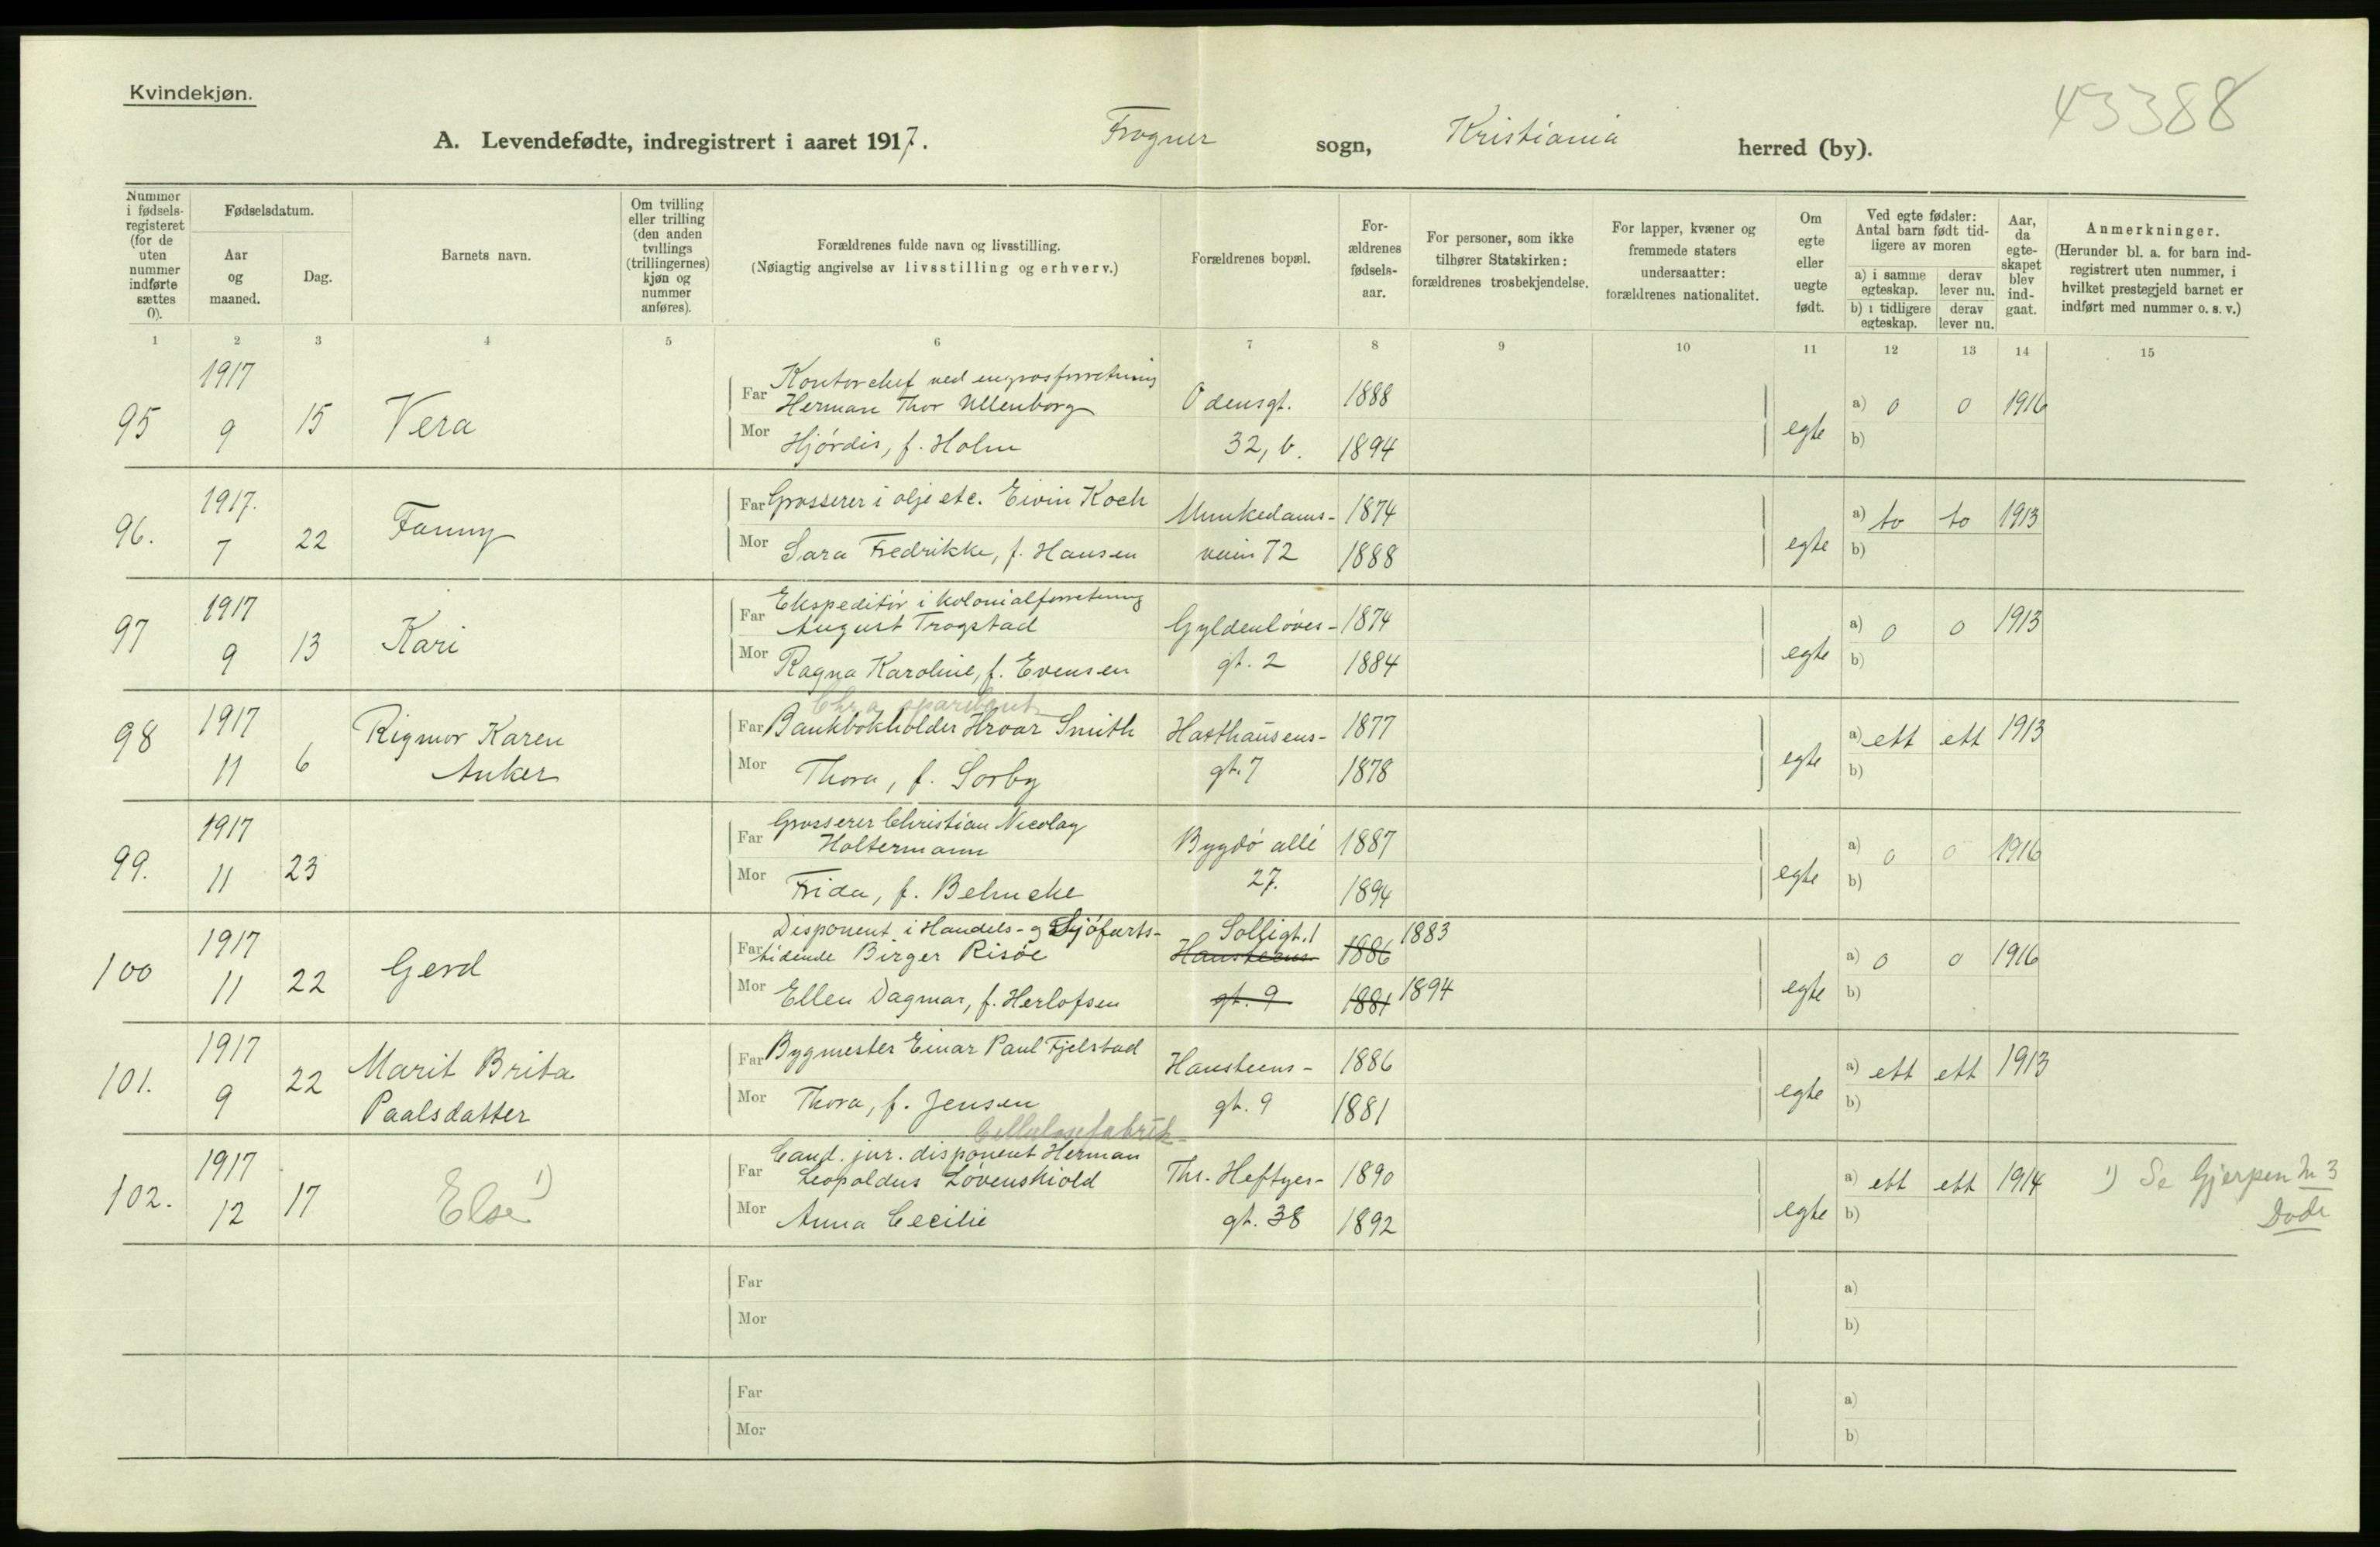 Kvindekjøn.
43388
A. Levendefødte, indregistrert i aaret 1917. Frogner sogn, Kristiania herred (by).
Nummer i fødselsregisteret (for de uten nummer indførte sættes 0).
Fødselsdatum.
Aar og maaned.
Dag.
Barnets navn.
Om tvilling eller trilling (den anden tvillings (trillingernes) kjøn og nummer anføres).
Forældrenes fulde navn og livsstilling.
(Nøiagtig angivelse av livsstilling og erhverv.)
Forældrenes bopæl.
Forældrenes fødselsaar.
For personer, som ikke tilhører Statskirken: forældrenes trosbekjendelse.
For lapper, kvæner og fremmede staters undersaatter: forældrenes nationalitet.
Om egte eller uegte født.
Ved egte fødsler: Antal barn født tidligere av moren
a) i samme egteskap. derav lever nu.
b) i tidligere egteskap. derav lever nu.
Aar, da egteskapet blev indgaat.
Anmerkninger.
(Herunder bl. a. for barn indregistrert uten nummer, i hvilket prestegjeld barnet er indført med nummer o. s. v.)
1 2 3 4 5 6 7 8 9 10 11 12 13 14 15
95 1917 9 15 Vera
Far Kontorchef ved engrosforretning Herman Thor Ullenborg Odensgt. 1888
Mor Hjørdis, f. Holm 32, b. 1894
egte a) 0 0 1916
b)
96. 1917. 7 22 Fanny
Far Grosserer i olje etc. Eivin Koch Munkedams- 1874
Mor Sara Fredrikke, f. Hansen veien 72 1888
egte a) to to 1913
b)
97 1917 9 13 Kari
Far Ekspeditør i kolonialforretning August Trogstad Gyldenløves- 1874
Mor Ragna Karoline, f. Evensen gt. 2 1884
egte a) 0 0 1913
b)
98 1917 11 6 Rigmor Karen Anker
Chr.a sparebank
Far Bankbokholder Hroar Smith Haxthausens- 1877
Mor Thora, f. Sørby gt. 7 1878
egte a) ett ett 1913
b)
99. 1917 11 23
Far Grosserer Christian Nicolay Holtermann Bygdø allé 1887
Mor Frida, f. Behncke 27. 1894
egte a) 0 0 1916
b)
100 1917 11 22 Gerd
Far Disponent i Handels- og Sjøfarts- tidende Birger Risøe Solligt. 1 Hansteens 1886 1883
Mor Ellen Dagmar, f. Herlofsen gt. 9 1881 1894
egte a) 0 0 1916
b)
101. 1917 9 22 Marit Brita Paalsdatter
Far Bygmester Einar Paul Fjelstad Hansteens- 1886
Mor Thora, f. Jensen gt. 9 1881
egte a) ett ett 1913
b)
102. 1917 12 17 Else 1)
Cellulosefabrik
Far Cand. jur. disponent Herman Leopoldus Løvenskiold Ths. Heftyes- 1890
Mor Anna Cecilie gt. 38 1892
egte a) ett ett 1914
b)
1) Se Gjerpen Nr 3 Døde
Far a)
Mor b)
Far a)
Mor b)